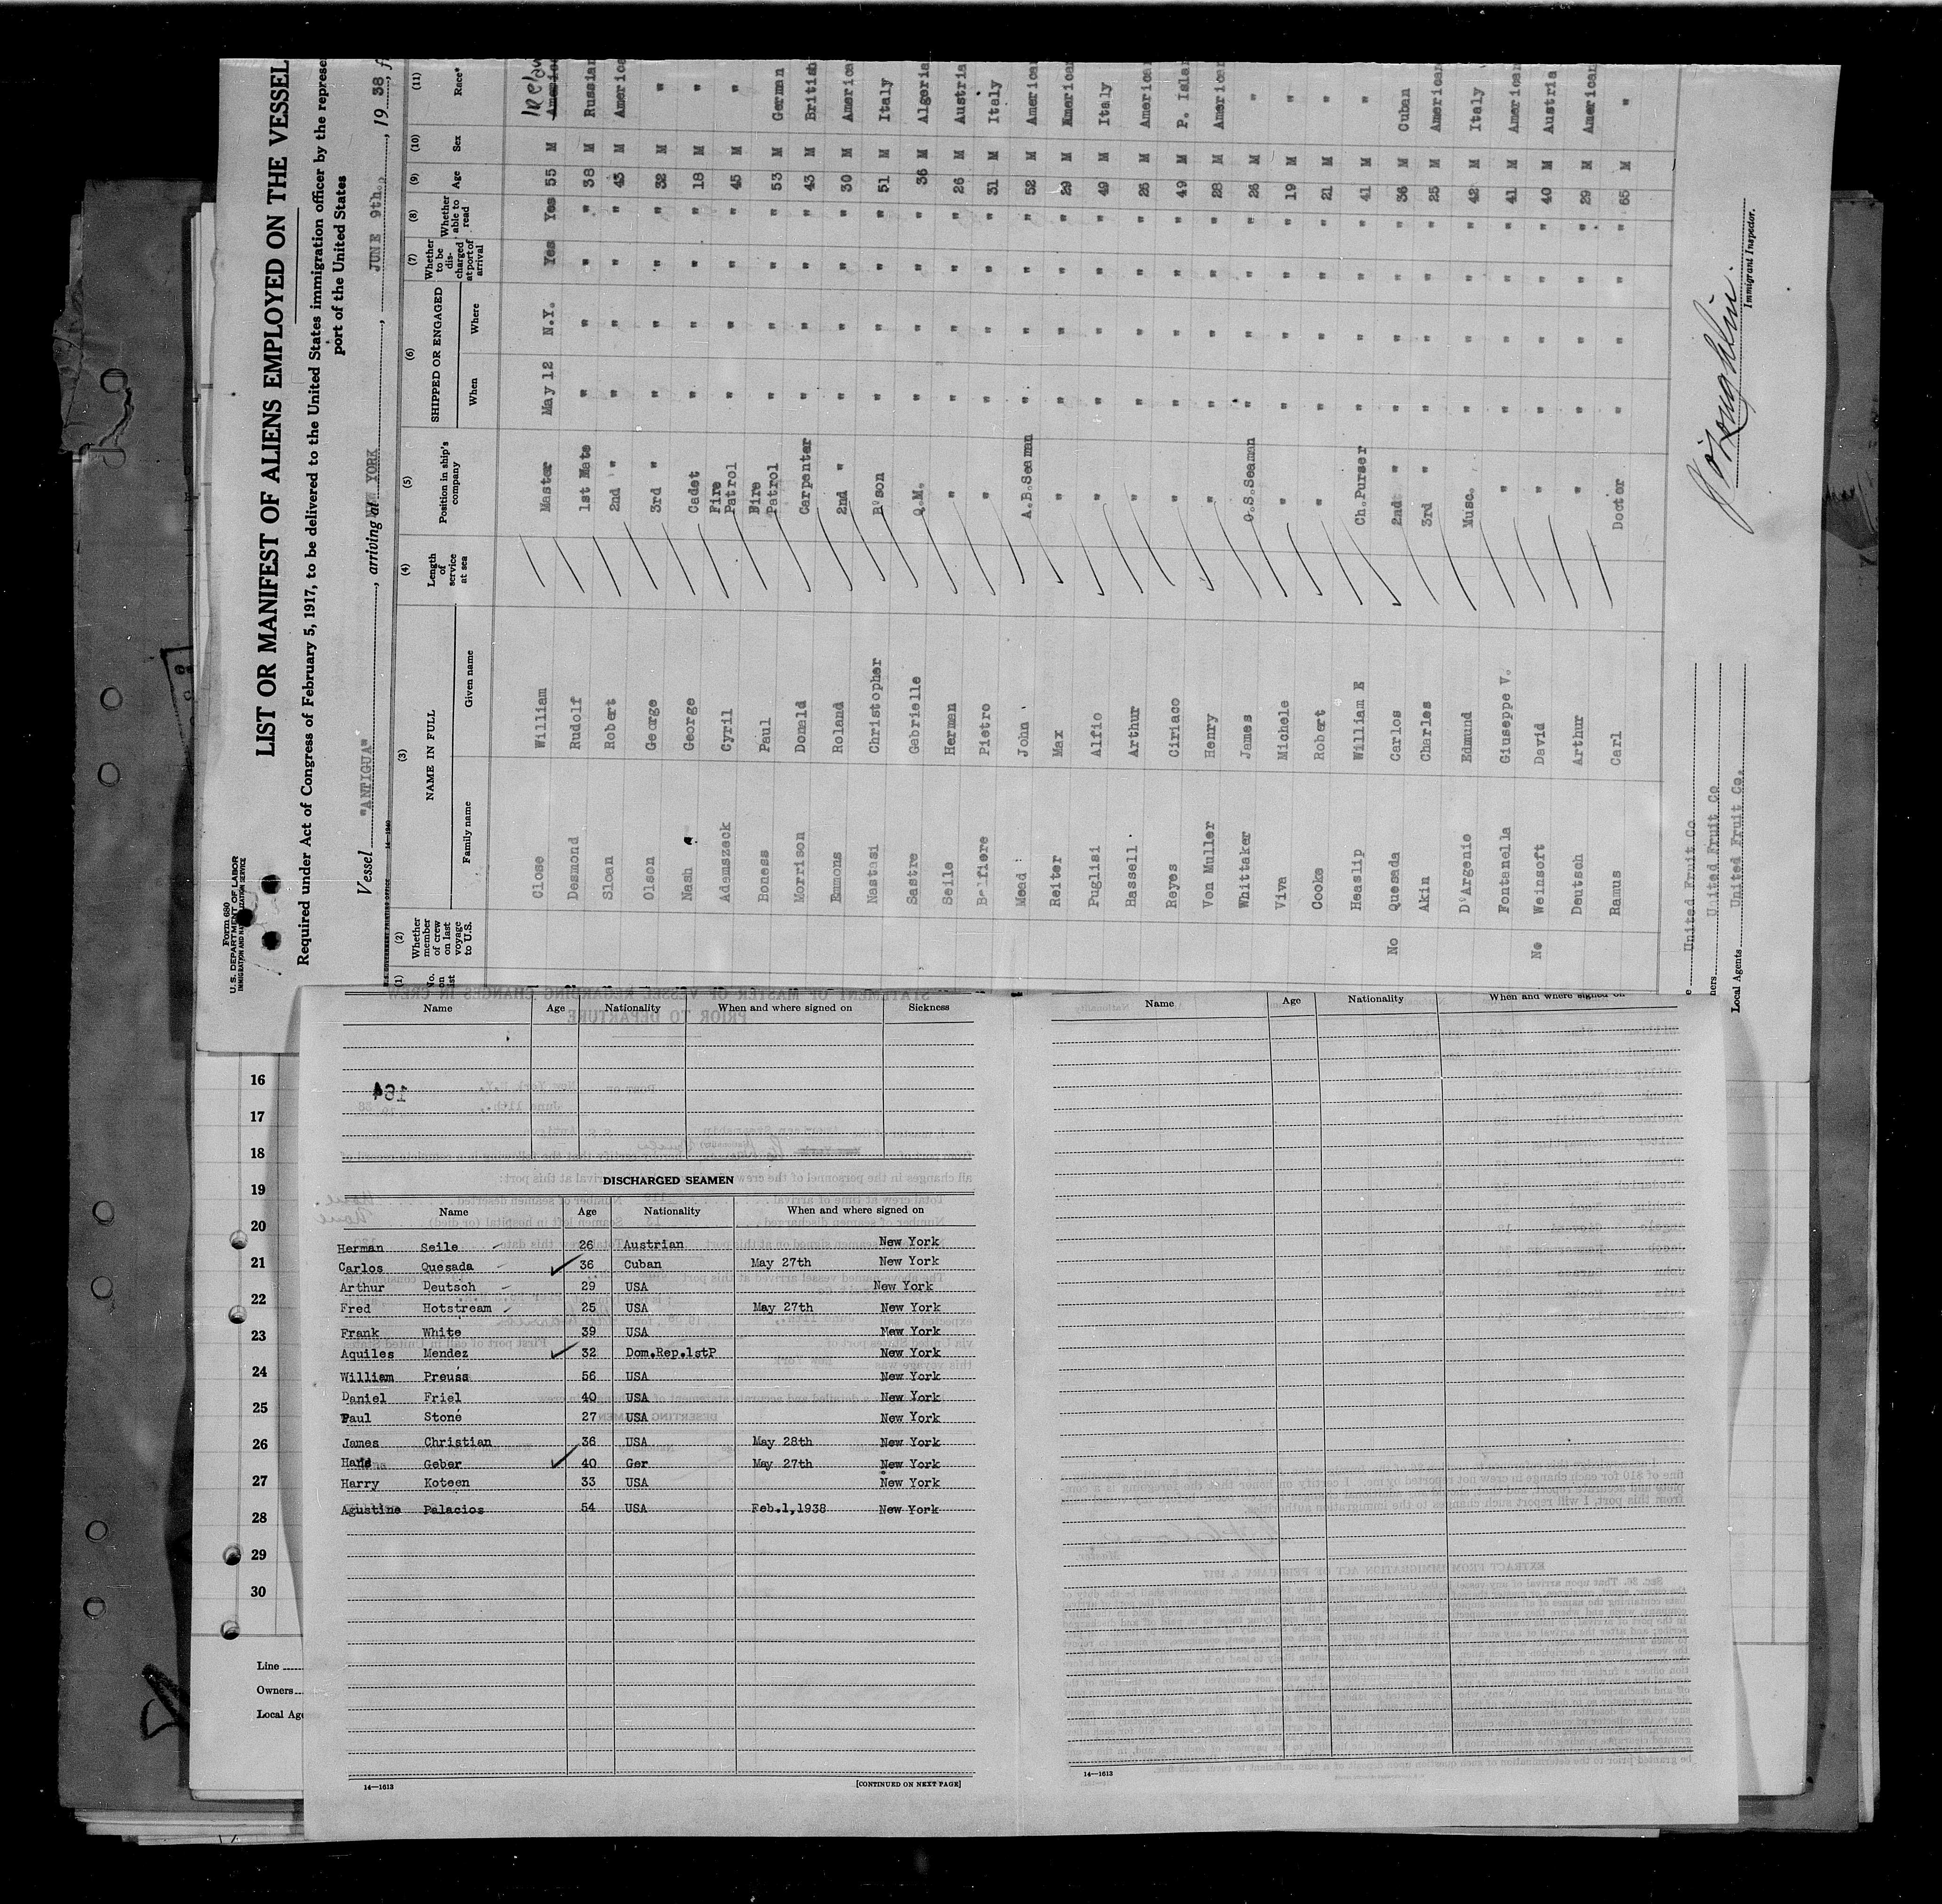 Form 680
U. S. DEPARTMENT OF LABOR
IMMIGRATION AND NATURALIZATION SERVICE
LIST OR MANIFEST OF ALIENS EMPLOYED ON THE VESSEL
Required under Act of Congress of February 5, 1917, to be delivered to the United States immigration officer by the represe
port of the United States
Vessel "ANTIGUA", arriving at NEW YORK, JUNE 9th., 19 38, f
(1) (2) (3) (4) (5) (6) (7) (8) (9) (10) (11)
No. on list
Whether member of crew on last voyage to U.S.
NAME IN FULL
Family name Given name
Length of service at sea
Position in ship's company
SHIPPED OR ENGAGED
When Where
Whether to be discharged at port of arrival
Whether able to read
Age Sex Race*
Close William Master May 12 N.Y. Yes Yes 55 M
Desmond Rudolf 1st Mate " " " " 38 M Russian
Sloan Robert 2nd " " " " " 43 M America
Olson George 3rd " " " " " 32 M "
Nash George Cadet " " " " 18 M "
Ademszeck Cyril Fire Patrol " " " " 45 M "
Boness Paul Fire Patrol " " " " 53 M German
Morrison Donald Carpenter " " " " 43 M British
Emmons Roland 2nd " " " " " 30 M America
Nastasi Christopher B'son " " " " 51 M Italy
Sastre Gabrielle Q.M. " " " " 36 M Algeria
Seile Herman " " " " " 26 M Austria
Belfiore Pietro " " " " " 31 M Italy
Mead John A.B.Seaman " " " " 52 M American
Reiter Max " " " " " 29 M American
Puglisi Alfio " " " " " 49 M Italy
Hassell Arthur " " " " " 26 M American
Reyes Ciriaco " " " " " 49 M P. Islan
Von Muller Henry " " " " " 28 M American
Whittaker James O.S.Seaman " " " " 26 M "
Viva Michele " " " " " 19 M "
Cooke Robert " " " " " 21 M "
Heaslip William E Ch.Purser " " " " 41 M "
No Quesada Carlos 2nd " " " " " 36 M Cuban
Akin Charles 3rd " " " " " 25 M American
D'Argenio Edmund Musc. " " " " 42 M Italy
Fontanella Giuseppe V. " " " " " 41 M American
No Weinsoft David " " " " " 40 M Austria
Deutsch Arthur " " " " " 29 M American
Ramus Carl Doctor " " " " 65 M "
United Fruit Co.
ners United Fruit Co
Local Agents United Fruit Co.
Immigrant Inspector.
Name Age Nationality When and where signed on Sickness
164
DISCHARGED SEAMEN
Name Age Nationality When and where signed on
Herman Seile 26 Austrian New York
Carlos Quesada 36 Cuban May 27th New York
Arthur Deutsch 29 USA New York
Fred Hotstream 25 USA May 27th New York
Frank White 39 USA New York
Aquiles Mendez 32 Dom.Rep.1stP New York
William Preuss 56 USA New York
Daniel Friel 40 USA New York
Paul Stone 27 USA New York
James Christian 36 USA May 28th New York
Geber 40 Ger May 27th New York
Harry Koteen 33 USA New York
Agustine Palacios 54 USA Feb.1,1938 New York
14—1613 [CONTINUED ON NEXT PAGE]
Name Age Nationality When and where signed on
14—1613
16
17
18
19
20
21
22
23
24
25
26
27
28
29
30
Line
Owners
Local Age